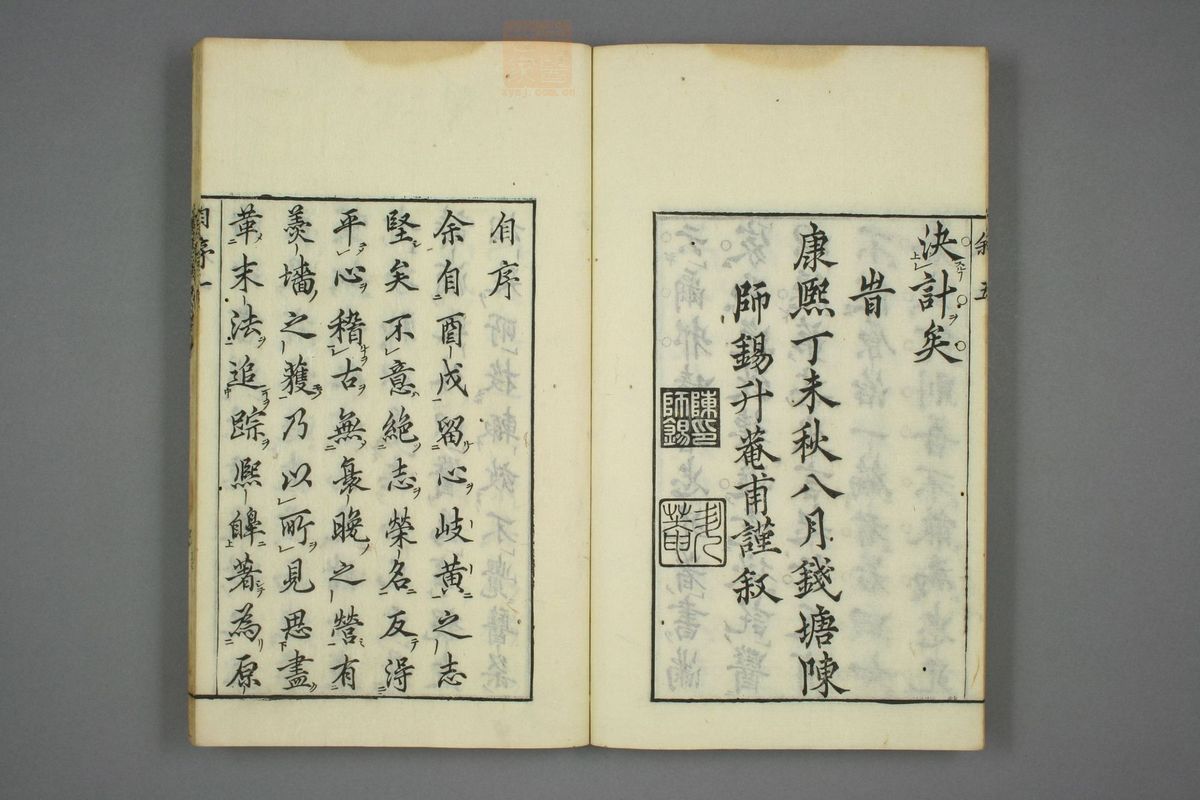 敘 五
決計矣
旹
康熙丁未秋八月錢塘陳
師錫升菴甫謹敘
陳印師錫
升菴
自序
余自酉戌留心岐黃之志
堅矣不意絕志榮名反得
平心稽古無裘晚之營有
羹墻之獲乃以所見思盡
革末法追踪熙皞著為原
自序 一
xynj.com.cn